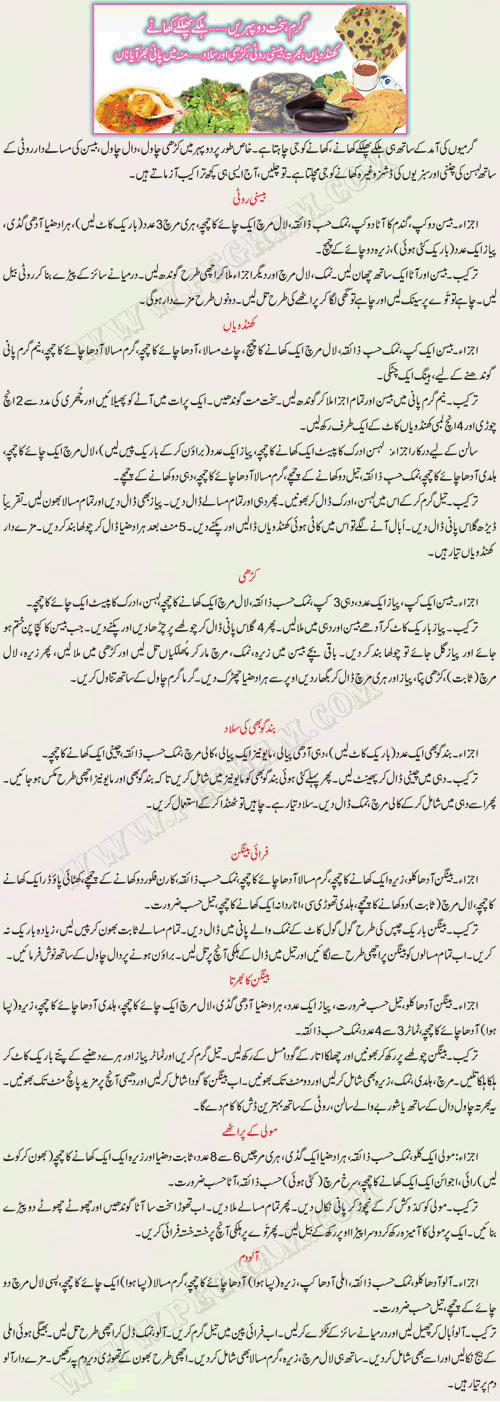 گرم، سخت دوپہریں......ہلکے پھلکے کھانے
کھنڈویاں، بھرتہ، بیسنی روٹی، کڑھی اور سلاد......منہ میں پانی بھر آیا ناں
گرمیوں کی آمد کے ساتھ ہی ہلکے پھلکے کھانے، کھانے کو جی چاہتا ہے۔ خاص طور پر دوپہر میں کڑھی چاول، دال چاول، بیسن کی مسالے دار روٹی کے
ساتھ لہسن کی چٹنی اور سبزیوں کی ڈشز وغیرہ کھانے کو جی مچلتا ہے۔ تو چلیں، آج ایسی ہی کچھ تراکیب آزماتے ہیں۔
بیسنی روٹی
اجزاء۔ بیسن دو کپ، گندم کا آٹا دو کپ، نمک حسب ذائقہ، لال مرچ ایک چائے کا چمچہ، ہری مرچ 3 عدد (باریک کاٹ لیں)، ہرا دھنیا آدھی گڈی،
پیاز ایک عدد (باریک کٹی ہوئی)، زیرہ دو چائے کے چمچ۔
ترکیب۔ بیسن اور آٹا ایک ساتھ چھان لیں۔ نمک، لال مرچ اور دیگر اجزاء ملا کر اچھی طرح گوندھ لیں۔ درمیانے سائز کے پیڑے بنا کر روٹی بیل
لیں۔ چاہے تو توے پر سینک لیں اور چاہے تو گھی لگا کر پراٹھے کی طرح تل لیں۔ دونوں طرح مزے دار ہوگی۔
کھنڈویاں
اجزاء۔ بیسن ایک کپ، نمک حسب ذائقہ، لال مرچ ایک کھانے کا چمچ، چاٹ مسالا، آدھا چائے کا چمچہ، گرم مسالا آدھا چائے کا چمچہ، نیم گرم پانی
گوندھنے کے لیے، ہینگ ایک چٹکی۔
ترکیب۔ نیم گرم پانی میں بیسن اور تمام اجزا ملا کر گوندھ لیں۔ سخت مت گوندھیں۔ ایک پرات میں آٹے کو پھیلائیں اور چھری کی مدد سے 2 انچ
چوڑی اور 4 انچ لمبی کھنڈویاں کاٹ کے ایک طرف رکھ لیں۔
سالن کے لیے درکار اجزاء: لہسن ادرک کا پیسٹ ایک کھانے کا چمچہ، پیاز ایک عدد (براؤن کر کے باریک پیس لیں)، لال مرچ ایک چائے کا چمچہ،
ہلدی آدھا چائے کا چمچہ، نمک حسب ذائقہ، تیل دو کھانے کے چمچے، گرم مسالا آدھا چائے کا چمچہ، دہی دو کھانے کے چمچے۔
ترکیب۔ تیل گرم کر کے اس میں لہسن، ادرک ڈال کر بھونیں۔ پھر دہی اور تمام مسالے ڈال دیں۔ پیاز بھی ڈال دیں اور تمام مسالا بھون لیں۔ تقریباً
ڈیڑھ گلاس پانی ڈال دیں۔ اُبال آنے لگے تو اس میں کاٹی ہوئی کھنڈویاں ڈالیں اور پکنے دیں۔ 5 منٹ بعد ہرا دھنیا ڈال کر چولھا بند کر دیں۔ مزے دار
کھنڈویاں تیار ہیں۔
کڑھی
اجزاء۔ بیسن ایک کپ، پیاز ایک عدد، دہی 3 کپ، نمک حسب ذائقہ، لال مرچ ایک کھانے کا چمچہ لہسن، ادرک کا پیسٹ ایک چائے کا چمچہ۔
ترکیب۔ پیاز باریک کاٹ کر آدھے بیسن اور دہی میں ملالیں۔ پھر 4 گلاس پانی ڈال کر چولھے پر چڑھا دیں اور پکنے دیں۔ جب بیسن کا کچا پن ختم ہو
جائے اور پیاز گل جائے تو چولھا بند کر دیں۔ باقی بچے بیسن میں زیرہ، نمک، مرچ ملا کر پھلکیاں تل لیں اور کڑھی میں ملا لیں، پھر زیرہ، لال
مرچ (ثابت)، کڑھی پتا، پیاز اور ہری مرچ ڈال کر بگھار دیں اوپر سے ہرا دھنیا چھڑک دیں۔ گرما گرم چاول کے ساتھ تناول کریں۔
بند گوبھی کی سلاد
اجزاء۔ بند گوبھی ایک عدد (باریک کاٹ لیں)، دہی آدھی پیالی، مایونیز ایک پیالی، کالی مرچ، نمک حسب ذائقہ، چینی ایک کھانے کا چمچہ۔
ترکیب۔ دہی میں چینی ڈال کر پھینٹ لیں۔ پھر پہلے کٹی ہوئی بند گوبھی کو مایونیز میں شامل کریں تا کہ بند گوبھی اور مایونیز اچھی طرح مکس ہو جائیں۔
پھر اسے دہی میں شامل کر کے کالی مرچ، نمک ڈال دیں۔ سلاد تیار ہے۔ چاہیں تو ٹھنڈا کر کے استعمال کریں۔
فرائی بینگن
اجزاء۔ بینگن آدھا کلو، زیرہ ایک کھانے کا چمچہ، گرم مسالا آدھا چائے کا چمچہ، نمک حسب ذائقہ، کارن فلور دو کھانے کے چمچے، کھٹائی پاؤڈر ایک کھانے
کا چمچہ، لال مرچ (ثابت) دو کھانے کا چمچے، ہلدی تھوڑی سی، انار دانہ ایک کھانے کا چمچہ، تیل حسب ضرورت۔
ترکیب۔ بینگن باریک چپس کی طرح گول گول کاٹ کے نمک والے پانی میں ڈال دیں۔ تمام مسالے ثابت بھون کر پیس لیں، زیادہ باریک نہ
کریں۔ اب تمام مسالوں کو بینگن پر اچھی طرح سے لگائیں اور تیل میں ڈال کے ہلکی آنچ پر تل لیں۔ براؤن ہونے پر دال چاول کے ساتھ نوش فرمائیں۔
بینگن کا بھرتا
اجزاء۔ بینگن آدھا کلو، تیل حسب ضرورت، پیاز ایک عدد، ہرا دھنیا آدھی گڈی، لال مرچ ایک چائے کا چمچہ، ہلدی آدھا چائے کا چمچہ، زیرہ (پسا
ہوا) آدھا چائے کا چمچہ، ٹماٹر 3 سے 4 عدد، نمک حسب ذائقہ۔
ترکیب۔ بینگن چولھے پر رکھ کر بھونیں اور چھلکا اتار کے گودا مسل کے رکھ لیں۔ تیل گرم کریں اور ٹماٹر پیاز اور ہرے دھنیے کے پتے باریک کاٹ کر
ہلکا ہلکا تلیں۔ مرچ، ہلدی، نمک، زیرہ بھی شامل کر لیں اور دو منٹ تک بھونیں۔ اب بینگن کا گودا شامل کر لیں اور دھیمی آنچ پر مزید پانچ منٹ تک بھونیں۔
یہ بھرتہ چاول دال کے ساتھ یا شوربے والے سالن، روٹی کے ساتھ بہترین ڈش کا کام دے گا۔
مولی کے پراٹھے
اجزاء: مولی ایک کلو، نمک حسب ذائقہ، ہرا دھنیا ایک گڈی، ہری مرچیں 6 سے 8 عدد، ثابت دھنیا اور زیرہ ایک ایک کھانے کا چمچہ (بھون کر کوٹ
لیں) رائی، اجوائن ایک ایک کھانے کا چمچہ، سرخ مرچ (کٹی ہوئی) حسب ذائقہ، آٹا حسب ضرورت۔
ترکیب۔ مولی کو کدو کش کر کے نچوڑ کر پانی نکال دیں۔ پھر تمام مسالے ملا دیں۔ اب تھوڑا سخت سا آٹا گوندھیں اور چھوٹے چھوٹے دو پیڑے
بنائیں۔ ایک پر مولی کا آمیزہ رکھ کر دوسرا پیڑا اوپر رکھ کے بیل لیں۔ پھر توے پر ہلکی آنچ پر خستہ خستہ فرائی کریں۔
آلو دم
اجزاء۔ آلو آدھا کلو، نمک حسب ذائقہ، املی آدھا کپ، زیرہ (پسا ہوا) آدھا چائے کا چمچہ، گرم مسالا (پسا ہوا) ایک چائے کا چمچہ، پسی لال مرچ دو
چائے کے چمچے، تیل حسب ضرورت۔
ترکیب۔ آلو اُبال کر چھیل لیں اور درمیانے سائز کے ٹکڑے کر لیں۔ اب فرائی پین میں تیل گرم کریں۔ آلو، نمک ڈال کر اچھی طرح تل لیں۔ بھیگی ہوئی املی
کے بیج نکالیں اور اسے بھی شامل کر دیں۔ ساتھ ہی لال مرچ، زیرہ، گرم مسالا بھی شامل کر دیں۔ اچھی طرح بھون کے تھوڑی دیر دم پہ رکھیں۔ مزے دار آلو
دم پر تیار ہیں۔
WWW.PEGHAM.COM